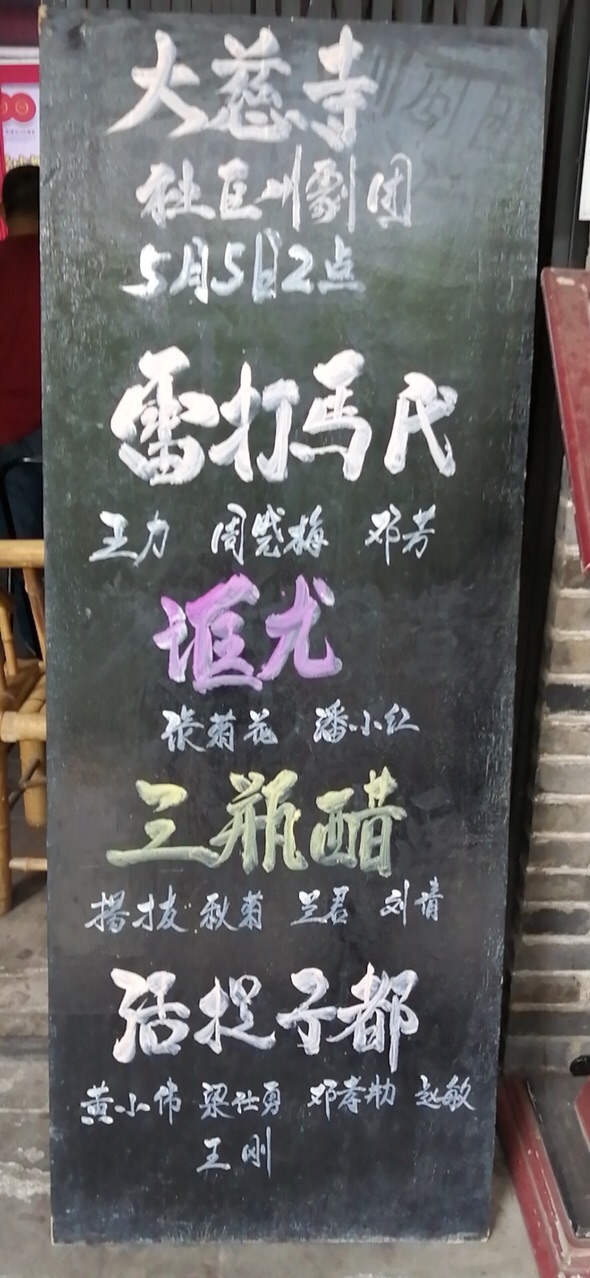 大慈寺
社区川剧团
5月5日2点
雷打马氏
王力 周光梅 邓芳
诓尤
张菊花 潘小红
三瓶醋
杨才友 秋菊 兰君 刘靖
活捉子都
黄小伟 梁仕勇 邓孝勒 赵敏
王刚